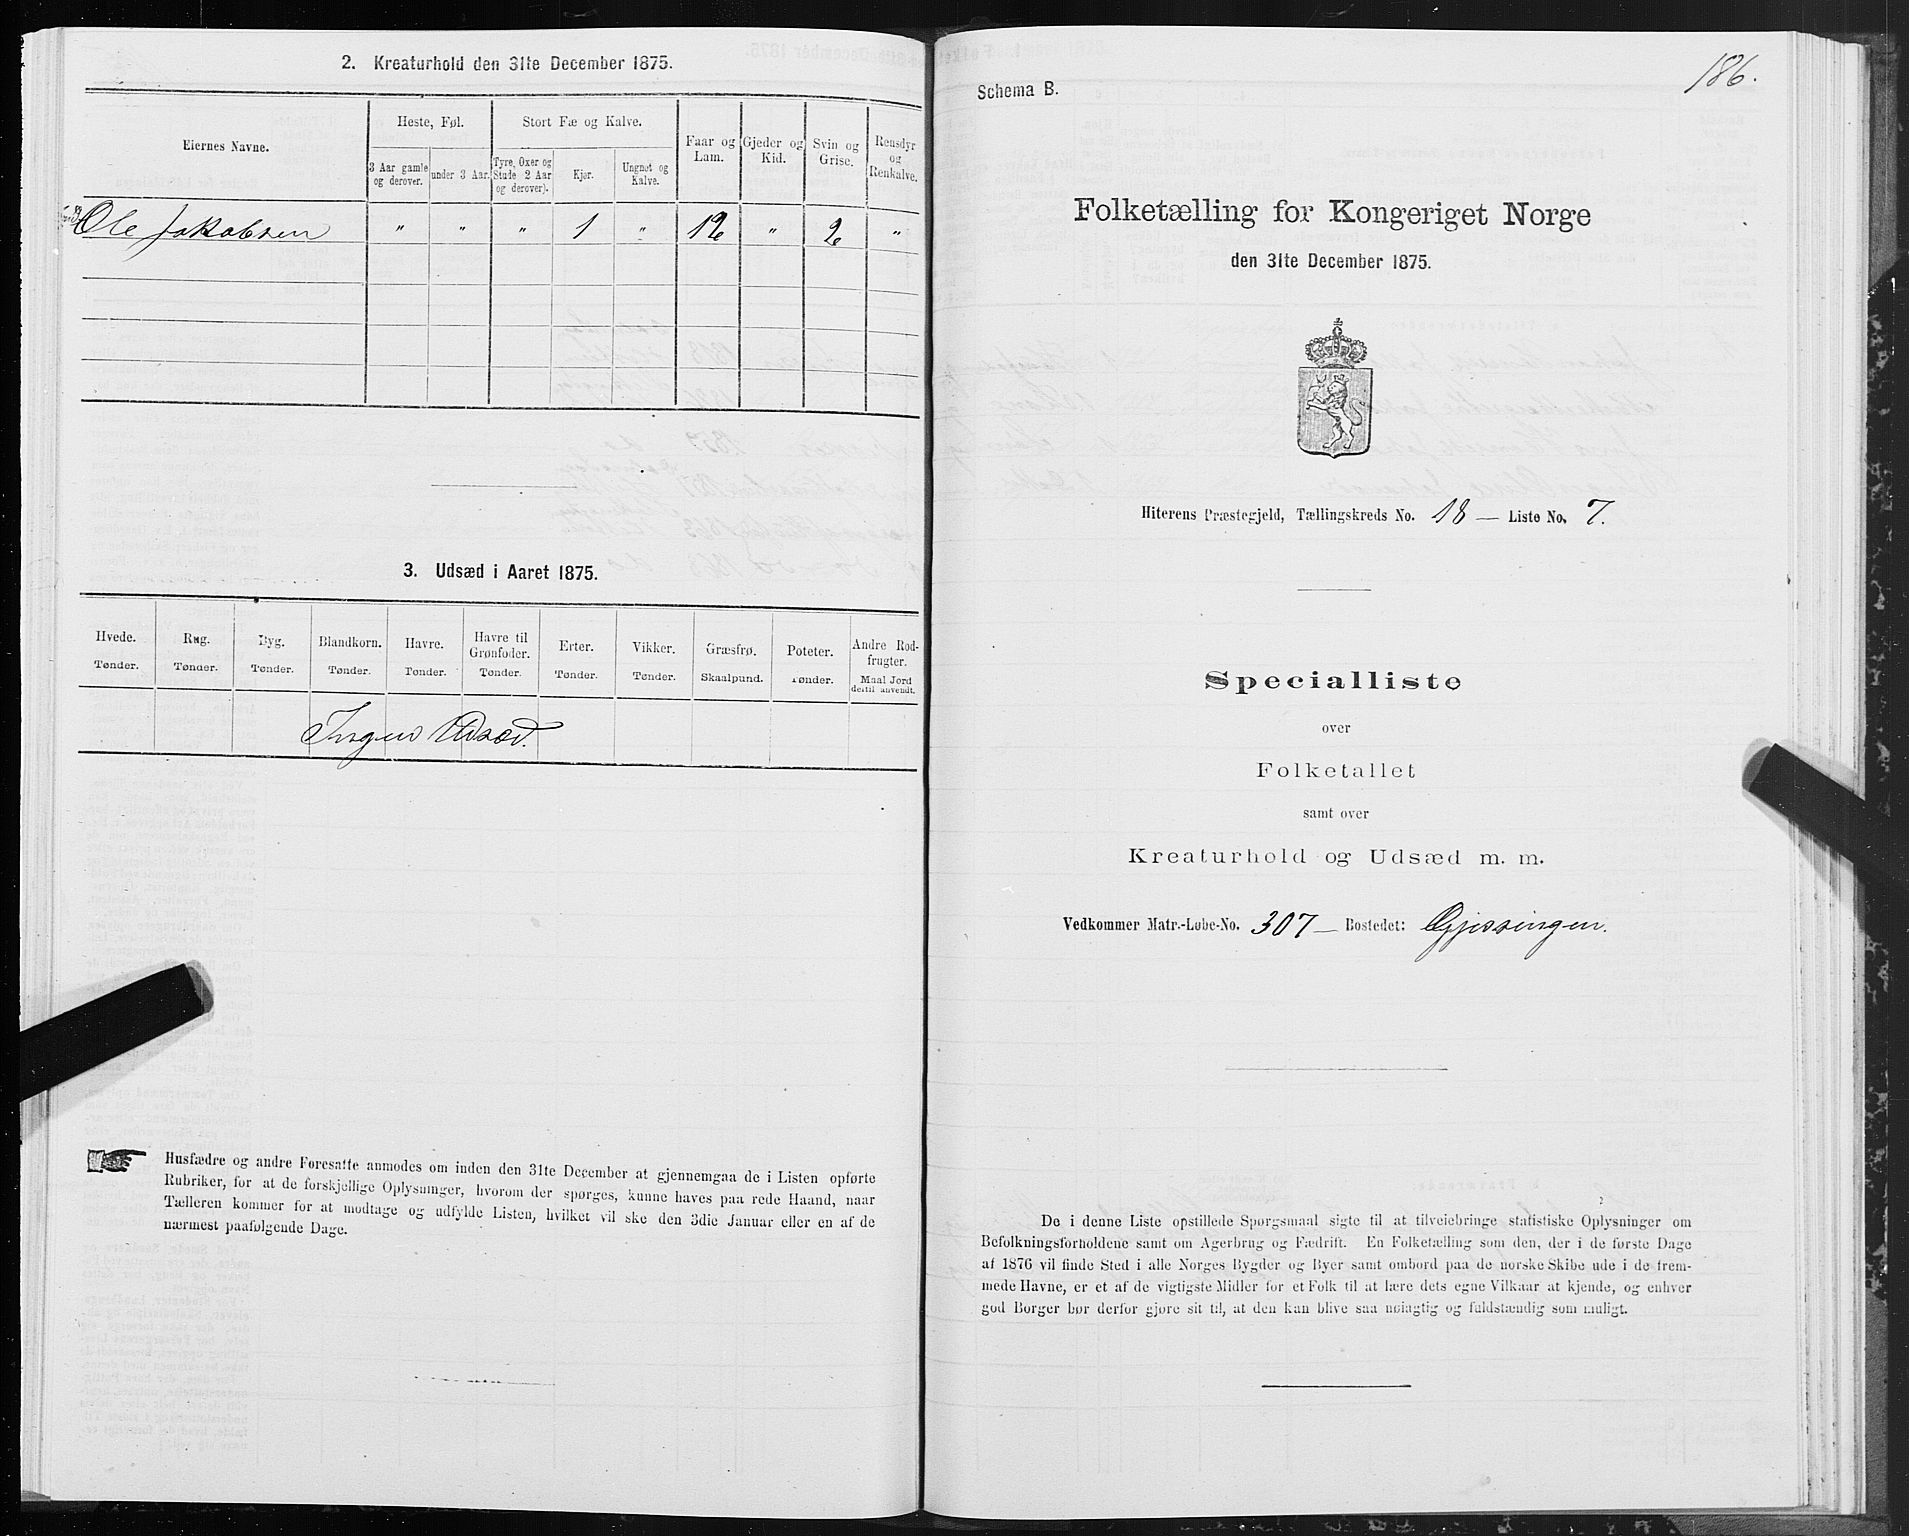 2. Kreaturhold den 31te December 1875.
Eiernes Navne.
Heste, Føl.
Stort Fæ og Kalve.
Faar og Lam.
Gjeder og Kid.
Svin og Grise.
Rensdyr og Renkalve.
3 Aar gamle og derover.
under 3 Aar.
Tyre, Oxer og Stude 2 Aar og derover).
Kjør.
Ungnøt og Kalve.
Ole Jakobsen " " " 1 " 12 " 2 "
3. Udsæd i Aaret 1875.
Hvede. Rug. Byg. Blandkorn. Havre. Havre til Grønfoder. Erter. Vikker. Græsfrø. Poteter. Andre Rodfrugter.
Tønder. Tønder. Tønder. Tønder. Tønder. Tønder. Tønder. Tønder. Skaalpund. Tønder. Maal Jord dertil anvendt.
Ingen Udsæd.
Husfædre og andre Foresatte anmodes om inden den 31te December at gjennemgaa de i Listen opførte
Rubriker, for at de forskjellige Oplysninger, hvorom der spørges, kunne haves paa rede Haand, naar
Tælleren kommer for at modtage og udfylde Listen, hvilket vil ske den 3die Januar eller en af de
nærmest paafølgende Dage.
186.
Schema B.
Folketælling for Kongeriget Norge
den 31te December 1875.
Hiterens Præstegjeld, Tællingskreds No. 18 — Liste No. 7.
Specialliste
over
Folketallet
samt over
Kreaturhold og Udsæd m. m.
Vedkommer Matr.-Løbe-No. 307 — Bostedet: Gjessingen.
De i denne Liste opstillede Spørgsmaal sigte til at tilveiebringe statistiske Oplysninger om
Befolkningsforholdene samt om Agerbrug og Fædrift. En Folketælling som den, der i de første Dage
af 1876 vil finde Sted i alle Norges Bygder og Byer samt ombord paa de norske Skibe ude i de frem-
mede Havne, er et af de vigtigste Midler for et Folk til at lære dets egne Vilkaar at kjende, og enhver
god Borger bør derfor gjøre sit til, at den kan blive saa nøiagtig og fuldstændig som muligt.